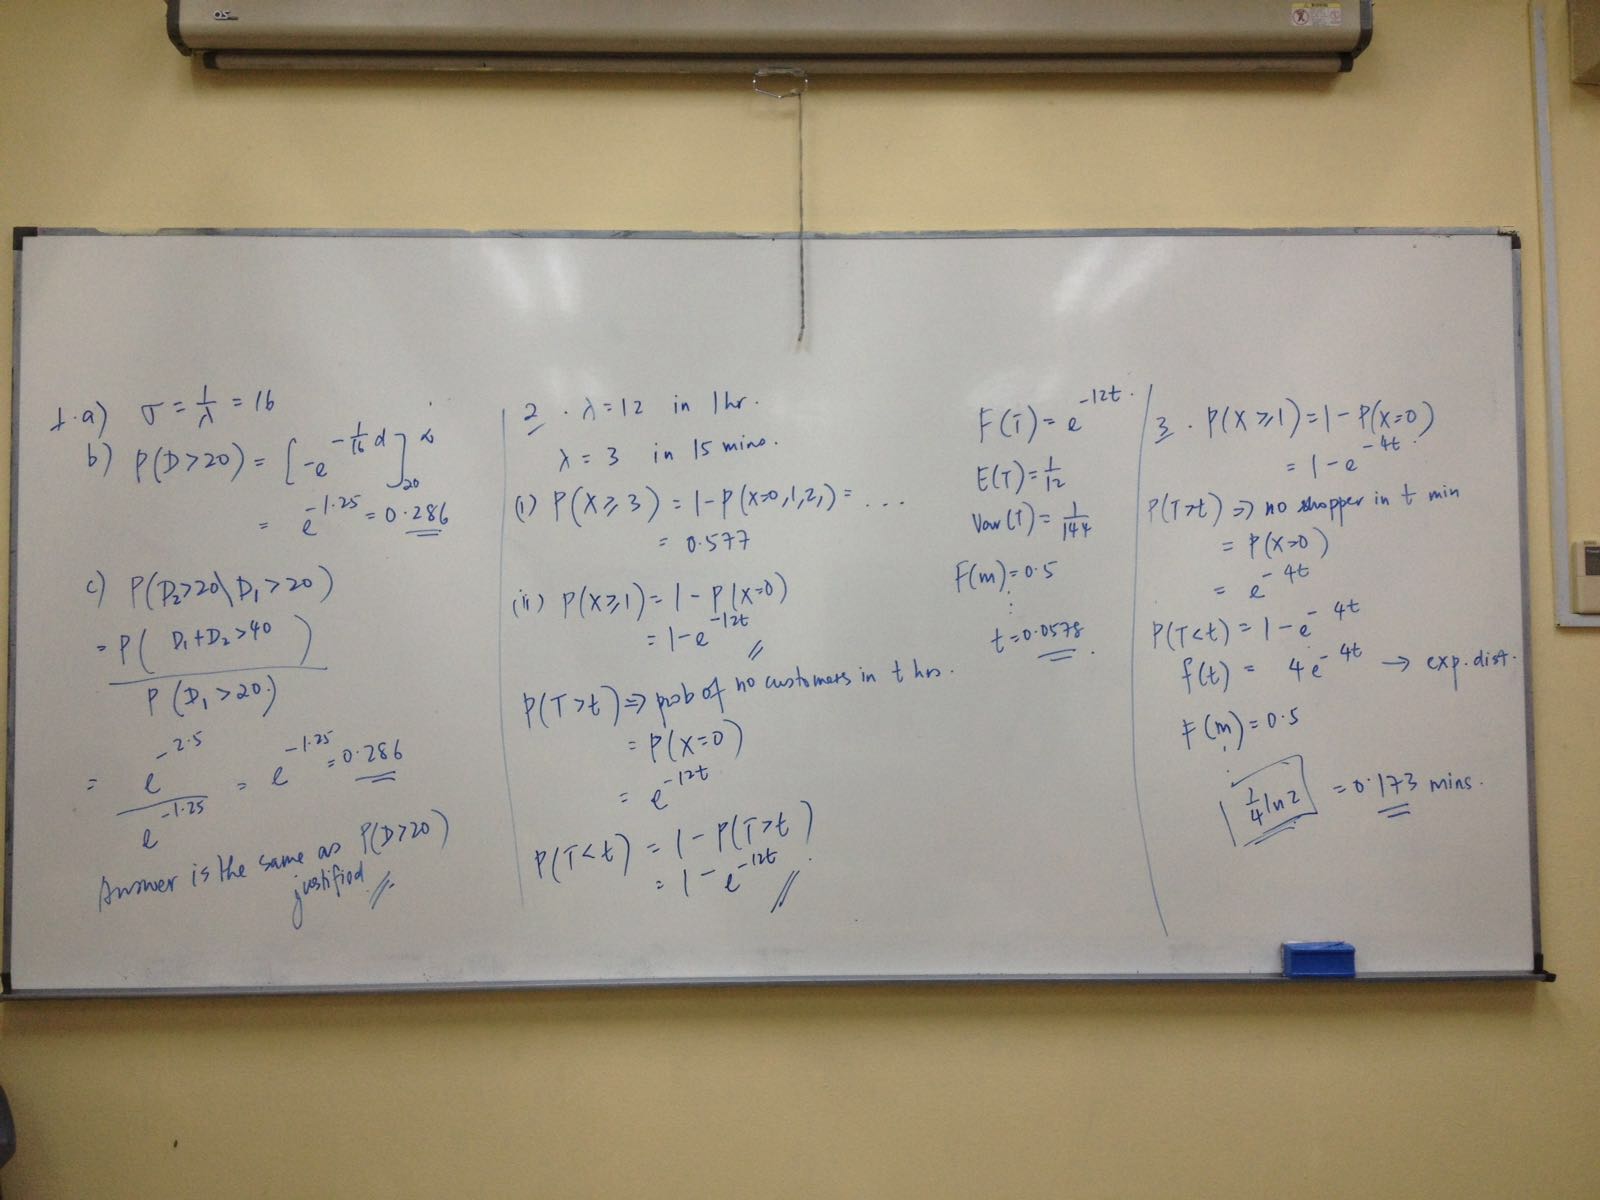 1. a) σ = 1/λ = 16
b) P(D>20) = [-e^{-1/16 d}]_{20}^{∞}
= e^{-1.25} = 0.286
c) P(D₂>20\D₁>20)
= P( D₁+D₂>40 )
P(D₁>20)
= e^{-2.5} / e^{-1.25} = e^{-1.25} = 0.286
Answer is the same as P(D>20)
justified
2. λ=12 in 1hr.
λ = 3 in 15 mins.
(i) P(X≥3) = 1-P(X=0,1,2,) = ...
= 0.577
(ii) P(X≥1) = 1-P(X=0)
= 1-e^{-12t}
P(T>t) ⇒ prob of no customers in t hrs.
= P(X=0)
= e^{-12t}
P(T<t) = 1-P(T>t)
= 1-e^{-12t}
F(T) = e^{-12t}.
E(T) = 1/12
Var(T) = 1/144
F(m) = 0.5
⋮
t = 0.0578
3. P(X≥1) = 1-P(X=0)
= 1-e^{-4t}.
P(T>t) ⇒ no shopper in t min
= P(X=0)
= e^{-4t}
P(T<t) = 1-e^{-4t}
f(t) = 4e^{-4t} → exp. dist.
F(m) = 0.5
⋮
1/4 ln2 = 0.173 mins.